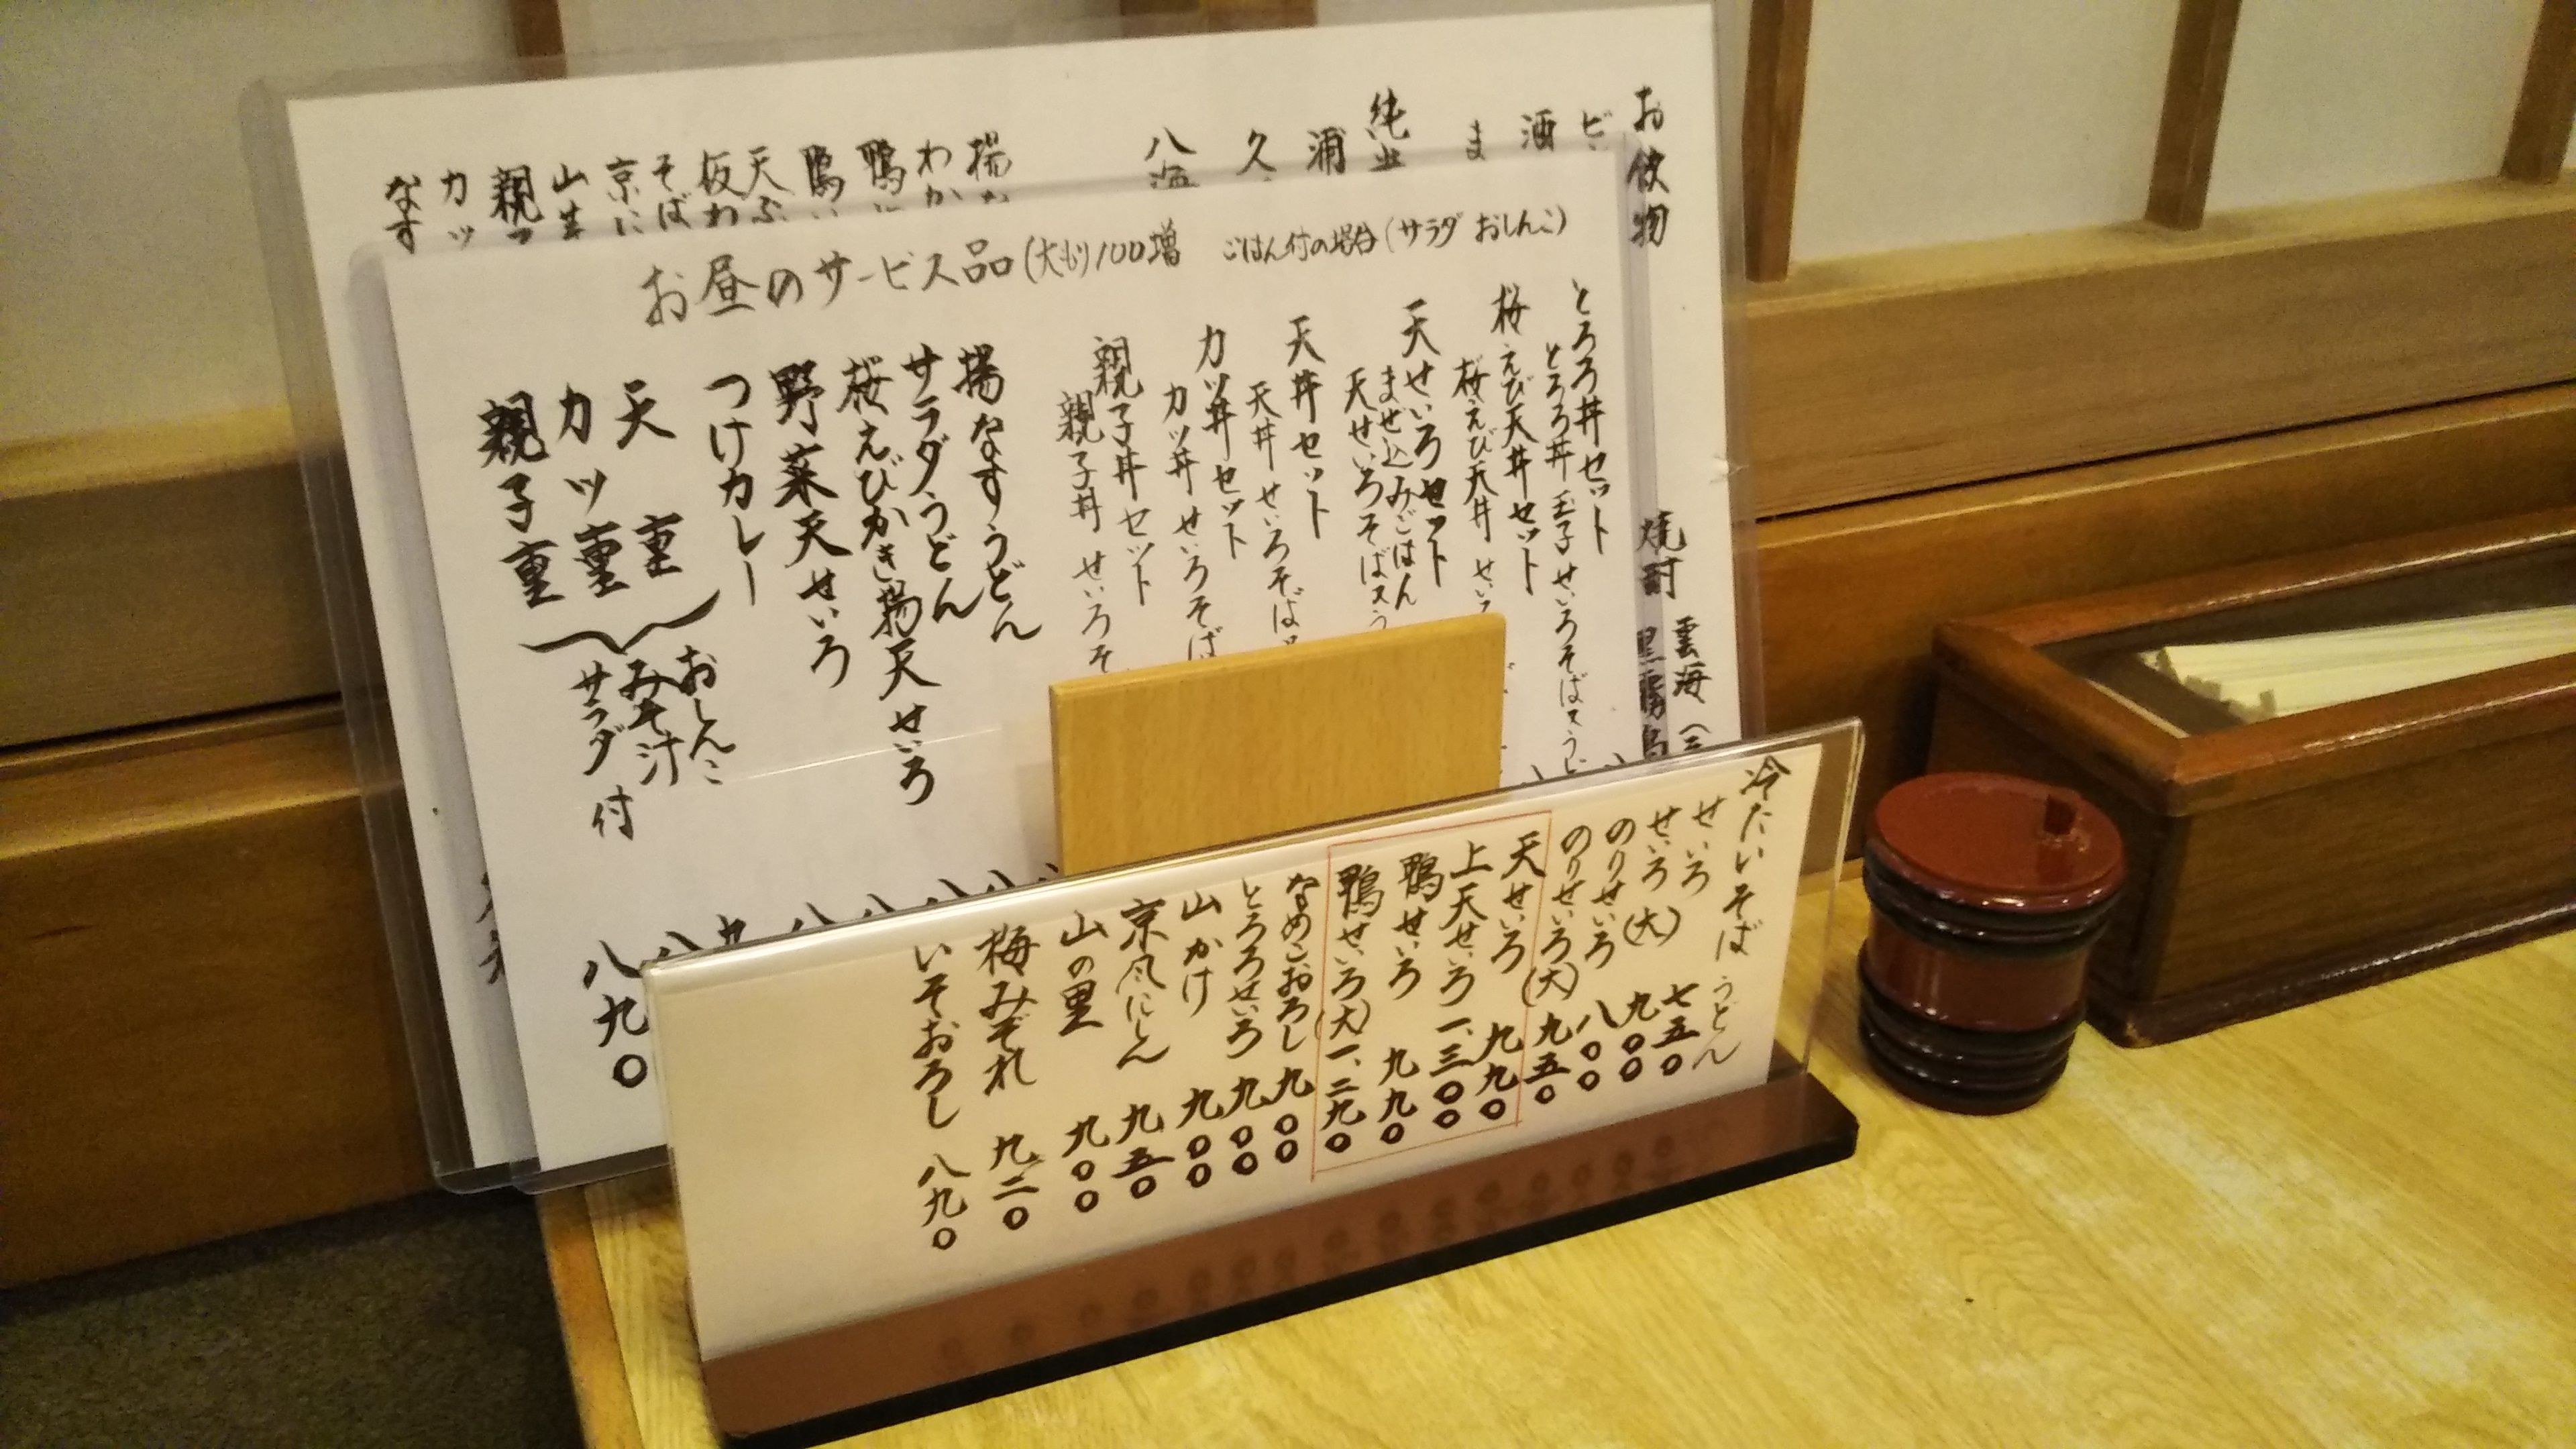 お飲物
焼酎
雲海
酒
ま
浦
久
八海
わか
天ぷ
板わ
そば
京に
カッ
なす
お昼のサービス品(大もり100増 ごはん付の場合(サラダ おしんこ)
とろろ丼セット
とろろ丼 玉子 せいろそば又うど
桜えび天丼セット
桜えび天丼 せい
天せいろセット
ませ込みごはん
天せいろそば又う
天丼セット
天丼 せいろそば
カツ丼セット
カツ丼 せいろそば
親子丼セット
親子丼 せいろそ
揚なすうどん
サラダうどん
桜えびかき揚天せいろ
野菜天せいろ
つけカレー
天重
カツ重
親子重
おしんこ
みそ汁
サラダ付
八九〇
冷たいそば うどん
せいろ 七五〇
せいろ(大) 九〇〇
のりせいろ 八〇〇
のりせいろ(大) 九五〇
天せいろ 九九〇
上天せいろ 一、三〇〇
鴨せいろ 九九〇
鴨せいろ(大) 一、二九〇
なめこおろし 九〇〇
とろろせいろ 九〇〇
山かけ 九〇〇
京風にしん 九五〇
山の里 九〇〇
梅みぞれ 九二〇
いそおろし 八九〇